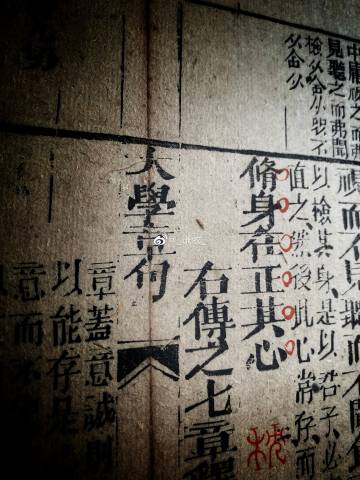 中庸視之而弗
見聽之而弗聞
視而不見聽而不聞
以檢其身是以君子必
直之然後此心常存而
脩身在正其心
右傳之七章釋
大學章句
章蓋意誠則
以能存是
意而不